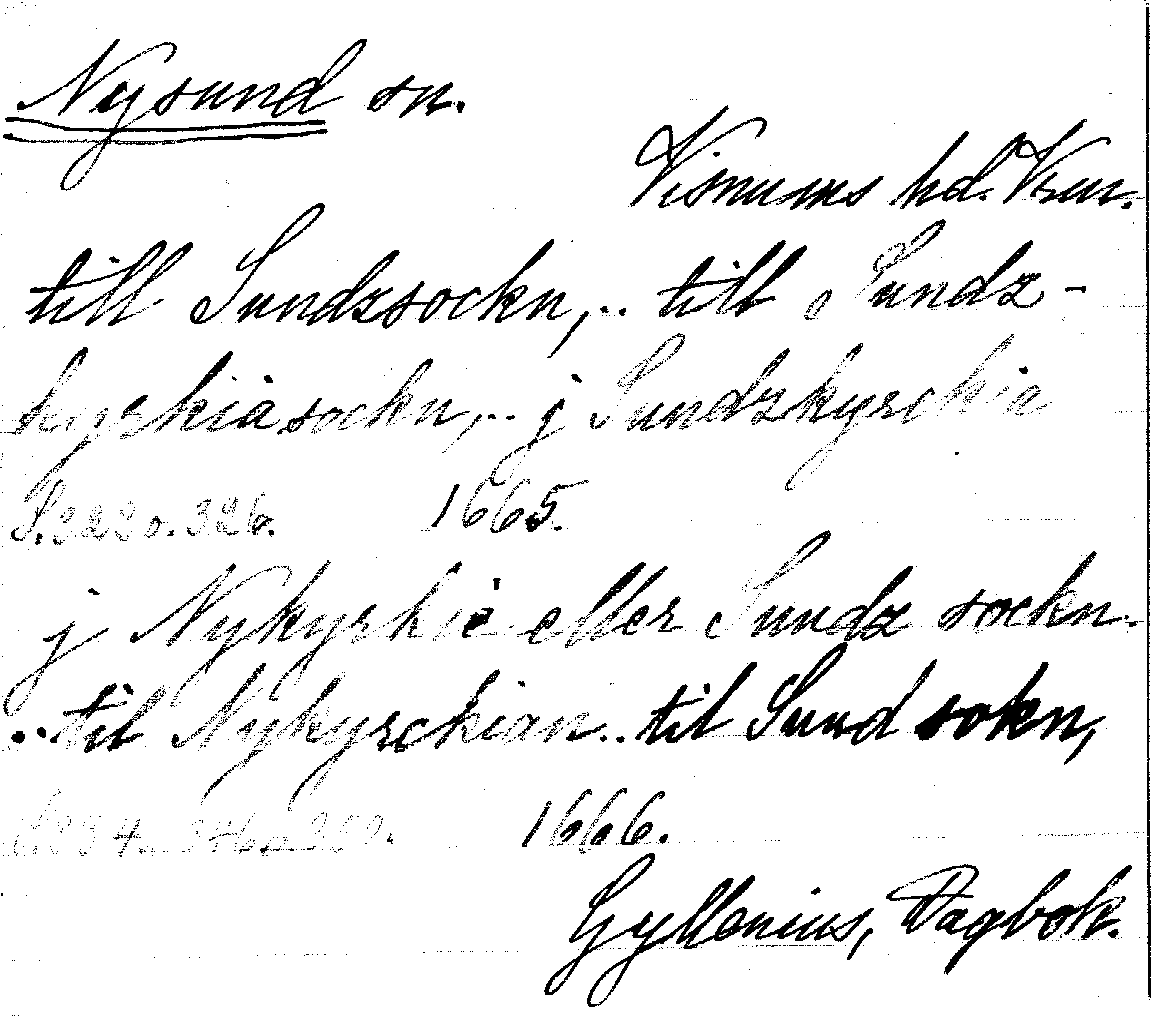 Nysund sn.
Visnums hd. Vrm.
till Sundzsockn,.. till Sundz-
kyrkiasockn,.. j Sundzkyrckia
S. 322 o. 326. 1665.
j Nykyrkie eller Sundz sockn.
.. til Nykyrckian.. til Sund sokn,
1666.
Gyllenius, Dagbok.